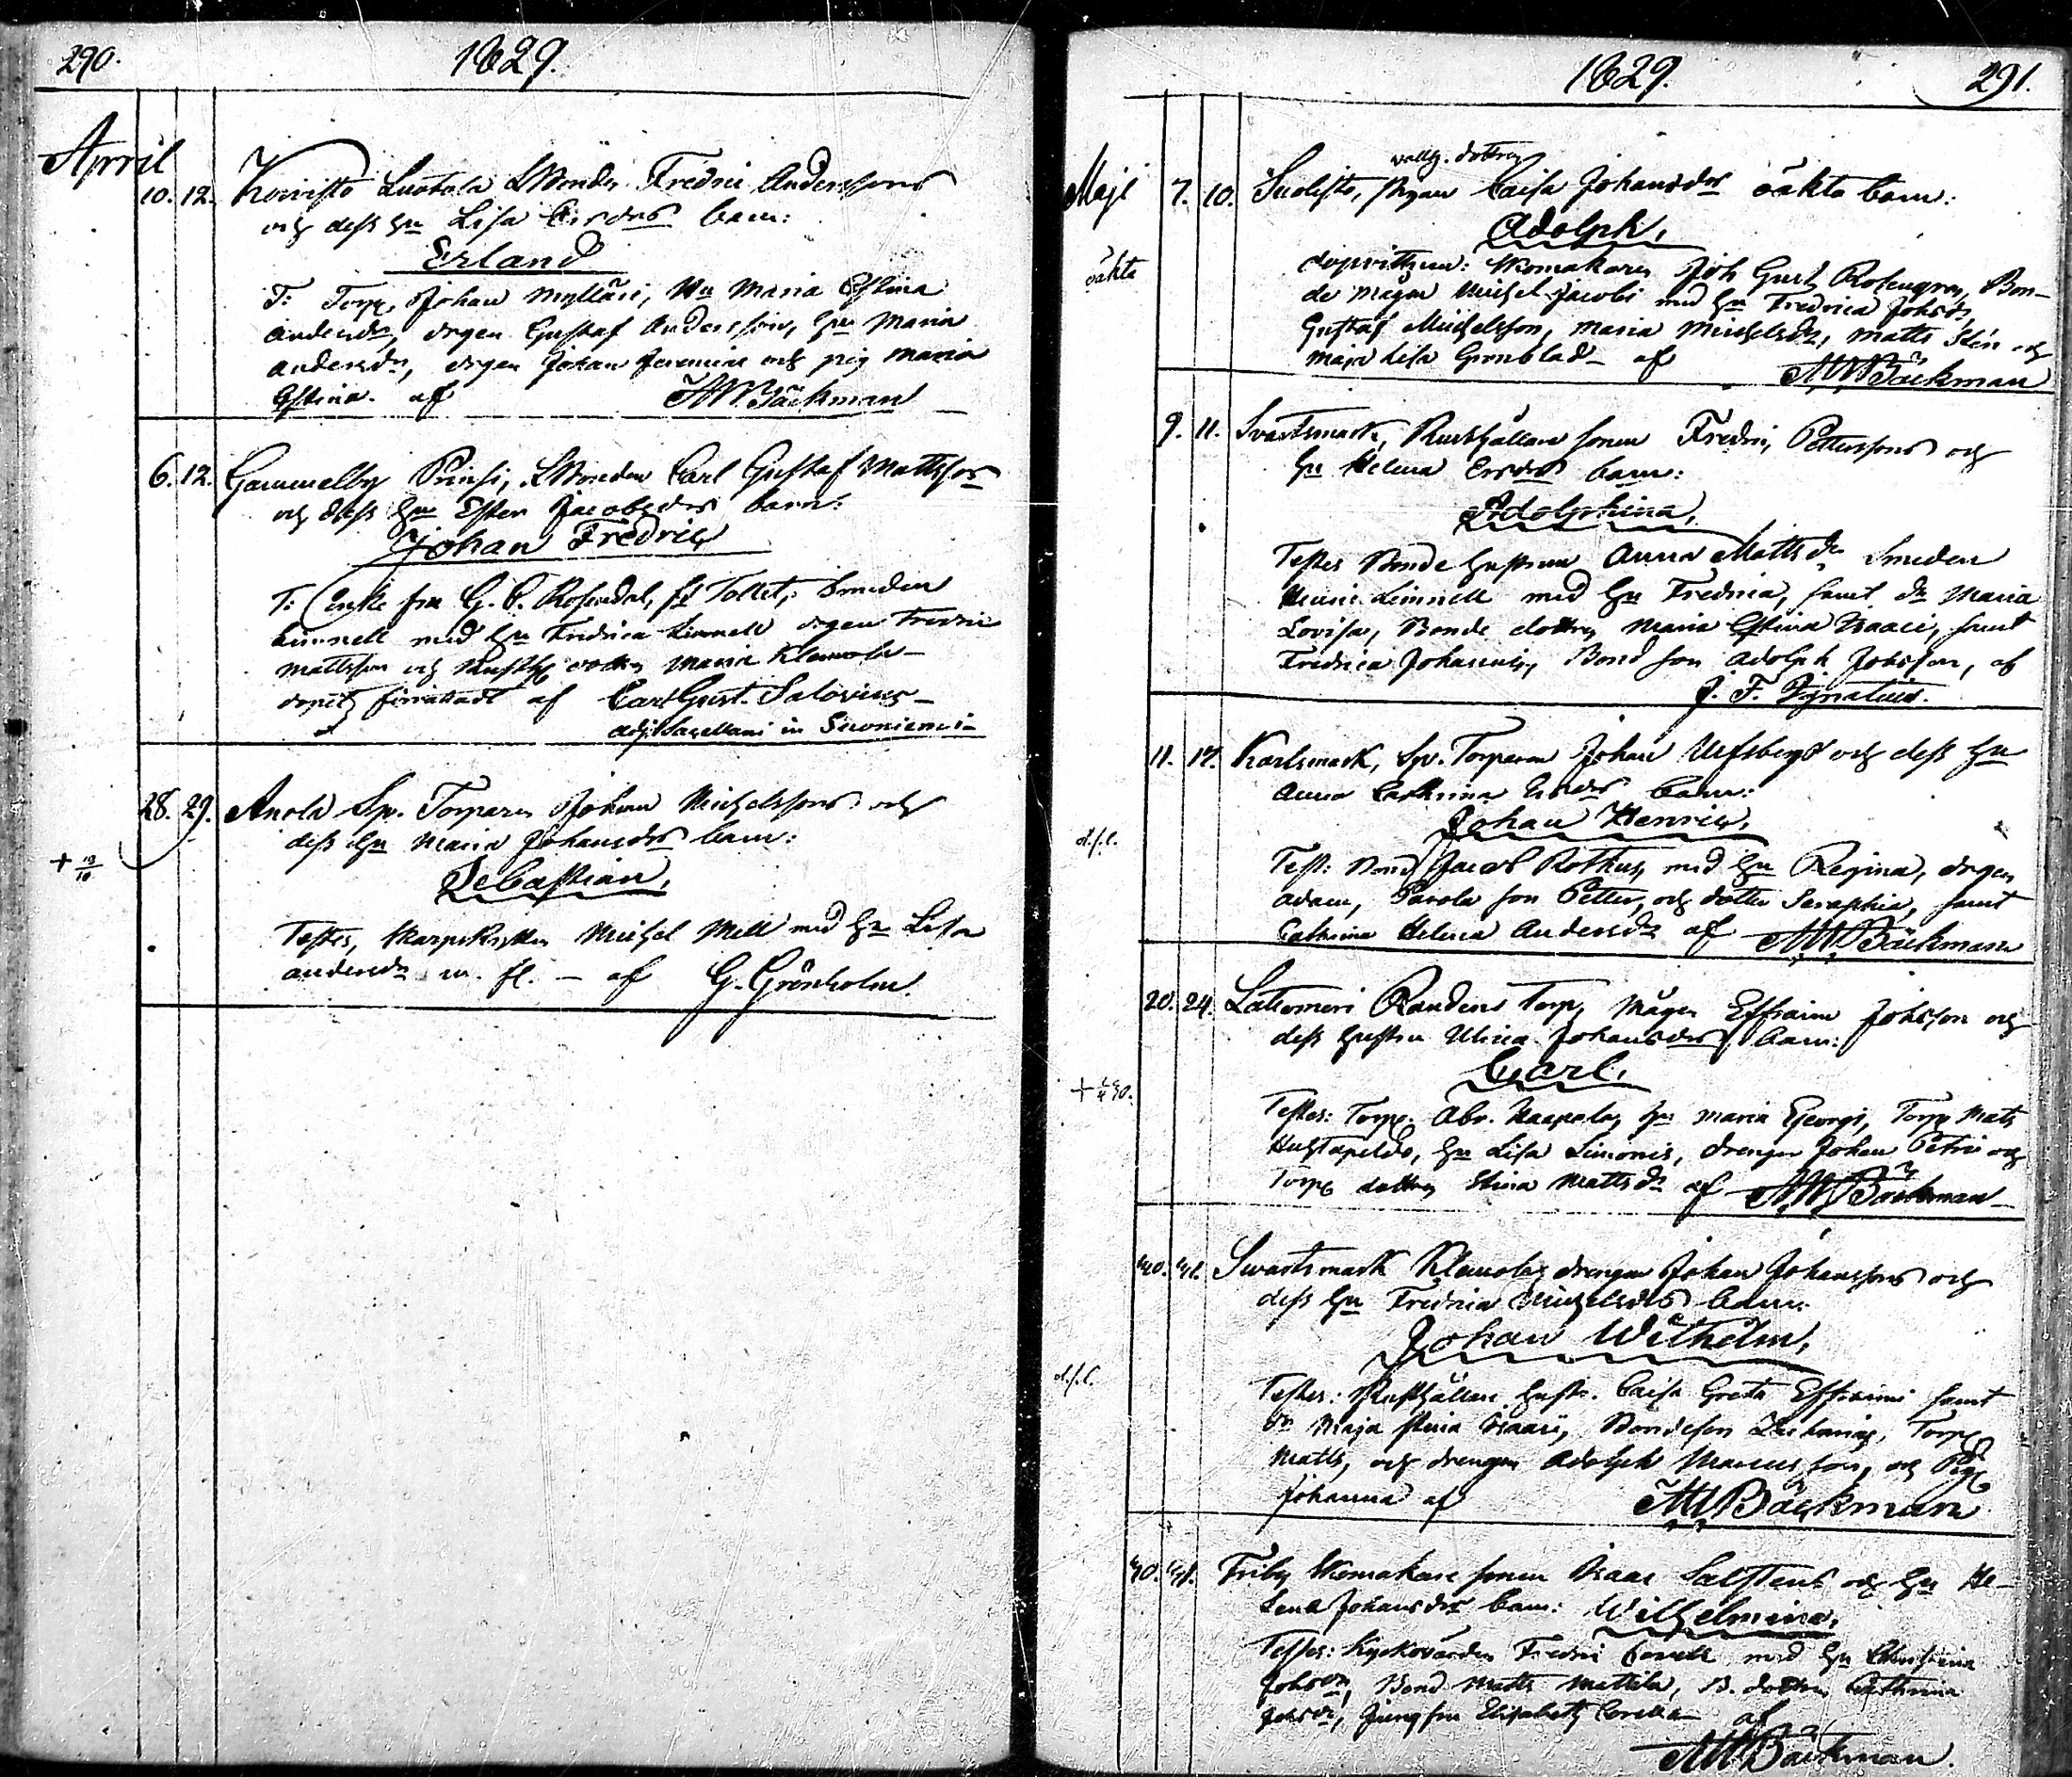 290. 1829.
April
10. 12. Koivisto Luotola LBonden Fredric Anderssons
och dess hu Lisa Ersdrs barn:
Erland
T: Torp. Johan Mylläri, hu Maria Christina
Andersdr, drgen Gustaf Andersson, hu Maria
Andersdr, drgen Johan Jeremiæ och pig Maria
Christina. af MWBäckman
6. 12. Gammelby Prinsi, LBonden Carl Gustaf Mattsson
och dess hu Ester Jacobsdrs barn:
Johan Fredric
T: Enke fru G. C. Rosendal, Tollet, Smeden
Linnell med hu Fredrica Linnell drgen Fredric
Mattsson och dottren Maria Klemola
dopet förrättadt af Carl Gust. Salovius
adj: Sacellani in Suoniemi
28. 29. Anola Sp. Torparen Johan Michelssons och
dess hu Maria Johansdrs barn:
+ 13/10
Sebastian,
Testes, Skarpskytten Michel Mell med hu Lisa
Andersdr m. fl. – af G. Grönholm.
1829. 291.
Maji
wallh. dottren
7. 10. Suolisto, pigan Caisa Johansdrs oäkta barn:
Adolph,
oäkta
dopvittnen: Skomakaren Joh Gust Rosengren, Bon-
de mågen Michel Jacobi med hu Fredrica Johsdr,
Gustaf Michelsson, Maria Michelsdr, Matts Sten och
Maja Lisa Grönblad af MWBäckman
9. 11. Svartsmark, Rusthållare sonen Fredric Petterssons och
hu Helena Ersdrs barn:
Adolphina,
Testes Bonde hustrun Anna Mattsdr Smeden
Linnell med hu Fredrica, samt dr Maria
Lovisa, Bonde dottren Maria Christina Isaaci, samt
Fredrica Johannis, Bond son Adolph Johsson, af
J. F. Ignatius.
11. 17. Karlsmark, Sp. Torparen Johan Ulfsbergs och dess hu
Anna Cathrina barn:
Johan Henric,
d.f.l.
Test: Bond Jacob Rothus, med hu Regina, drgen
Adam, Parola son Petter, och dotter Seraphia, samt
Cathrina Helena Andersdr af MWBäckman
20. 24. Lattomeri Randens Torp, Mågen Effraim Johsson och
dess hustru Ulrica Johansdrs barn:
Carl,
Testes: Torp. Abr. Haapala, hu Maria Georgi, Torp Matts
Huhtapeldo, hu Lisa Simonis, drengen Johan Petri och
Torp dottren Stina Mattsdr af MWBäckman
30. 31. Swartsmark Klemola, drengen Johan Johanssons och
dess hu Fredrica Michelsdrs barn:
Johan Wilhelm,
d.f.l.
Testes: Rusthållare hustr. Caisa Greta Effraimi samt
dr Maja Stina Isaaci, Bondeson Zacharias, Torp
Matts, och drengen Adolph Marcusson, och Pig
Johanna af MWBäckman
30. 31. Friby Skomakare sonen Isaac Salstens och hu He-
lena Johansdrs barn: Wilhelmina,
Testes: Kyrkovärden Fredric Corell med hu Christina
Johsdr, Bond Matts Mattila, B. dottren Cathrina
Johsdr, Jungfru Elisabeth Corell af
MWBäckman.